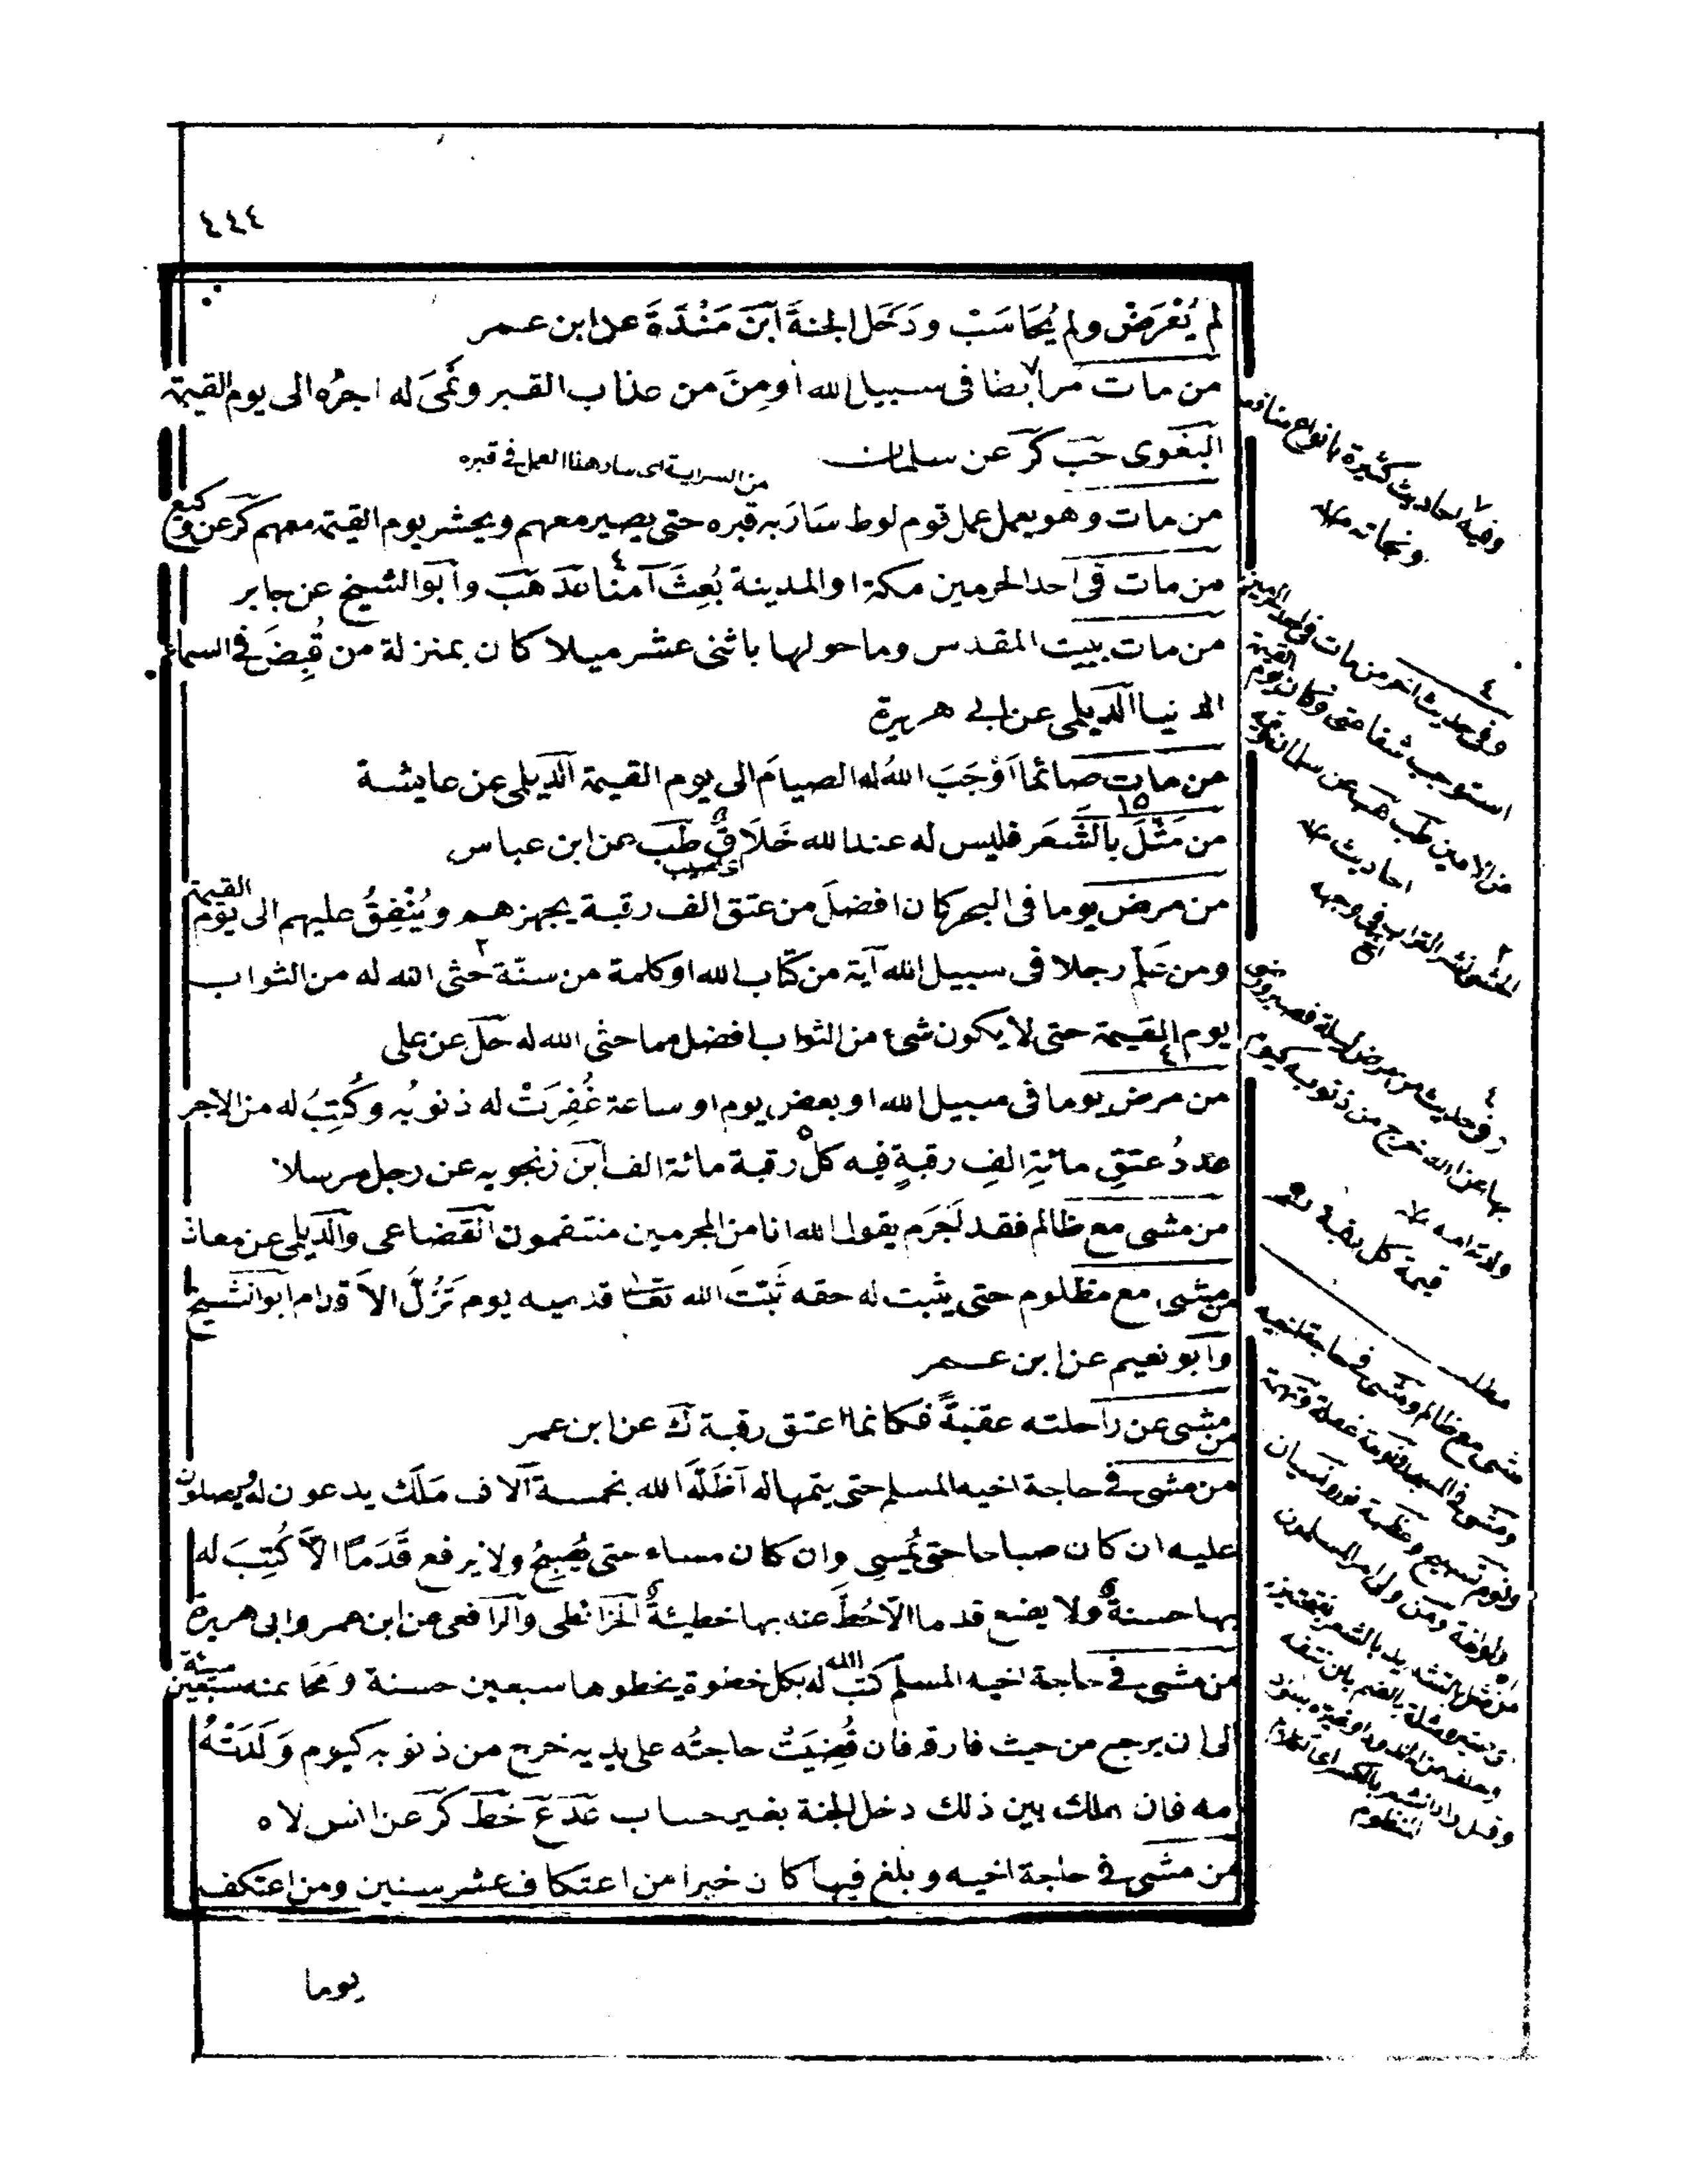 ٤٤٤
لم يُعْرَضْ ولم يُحَاسَبْ ودَخَلَ الجنةَ ابْنُ مَنْدَةَ عن ابن عمر
من مات مرابطا فى سبيل الله أومِنَ من عذاب القبر ونَمَى له اجرُه الى يوم القيمة
البَغَوى حَبَ كَرَ عن سلمان
من السراية اى سار هذا العمل فى قبره
من مات وهو يعمل عمل قوم لوط سَارَ به قبره حتى يصير معهم ويحشر يوم القيمة معهم كر عن وكيع
من مات فى احد الحرمين مكة او المدينة بُعِثَ آمنا عد هَبَ وابو الشيخ عن جابر
من مات ببيت المقدس وما حولها باثنى عشر ميلا كان بمنزلة من قُبِضَ فى السماء
الدنيا الديلمى عن ابى هريرة
من مات صائما أوْجَبَ اللهُ له الصيامَ الى يوم القيمة الديلمى عن عايشة
من مَثَّلَ بالشَّعَر فليس له عند الله خَلَاقٌ طَبَ عن ابن عباس
اى نصيب
من مرض يوما فى البحر كان افضلَ من عتق الف رقبة يجهزهم ويُنْفِقُ عليهم الى يوم القيمة
ومن عَلَّم رجلا فى سبيل الله آية من كتاب الله او كلمة من سنّة حثى الله له من الثواب
يوم القيمة حتى لا يكون شئ من الثواب افضل مما حثى الله له حل عن على
من مرض يوما فى سبيل الله او بعض يوم او ساعة غُفِرَتْ له ذنوبُه وكُتِبَ له من الاجر
عددُ عتقِ مائةِ الفِ رقبةٍ قيمة كل رقبة مائة الف ابن زنجويه عن رجل مرسلا
من مشى مع ظالم فقد أجرم يقول الله انا من المجرمين منتقمون القضاعى والديلمى عن معاذ
من مشى مع مظلوم حتى يثبت له حقه ثَبَّتَ الله تعا قدميه يوم تَزُلُّ الاقدام ابو الشيخ
وابو نعيم عن ابن عمر
من مشى عن راحلته عقبةً فكانما اعتق رقبة ك عن ابن عمر
من مشى فى حاجة اخيه المسلم حتى يتمها له أظَلَّه الله بخمسة آلاف مَلَك يدعون له ويصلون
عليه ان كان صباحا حتى يُمسِى وان كان مساء حتى يُصْبِحُ ولا يرفع قَدَمًا الاّ كُتِبَ له
بها حسنةٌ ولا يضع قدما الاّ حُطَّ عنه بها خطيئةٌ الخرائطى والرافعى عن ابن عمر وابى هريرة
من مشى فى حاجة اخيه المسلم كتب الله له بكل خطوة يخطوها سبعين حسنة ومَحَا عنه سبعين سيئة
الى ان يرجع من حيث فارقه فان قُضِيَتْ حاجتُه على يديه خرج من ذنوبه كيوم وَلَدَتْهُ
امه فان هلك بين ذلك دخل الجنة بغير حساب ع عَدَ خَطَ كَرَ عن انس
من مشى فى حاجة اخيه وبلغ فيها كان خيرا من اعتكاف عشر سنين ومن اعتكف
يوما
وفيه احاديث كثيرة بانواع منافعه
ونجاته
وفى حديث آخر من مات فى احد الحرمين
استوجب شفاعتى وكان يوم القيمة
من الآمنين طب هب عن سلمان وفيه
احاديث
الحثى نثر التراب فى وجهه
الخ
وفى حديث من مرض ليلة فصبر ورضى
بها عن الله خرج من ذنوبه كيوم
ولدته امه
قيمة كل رقبة
مطلب
مشى مع ظالم ومشى فى حاجة اخيه